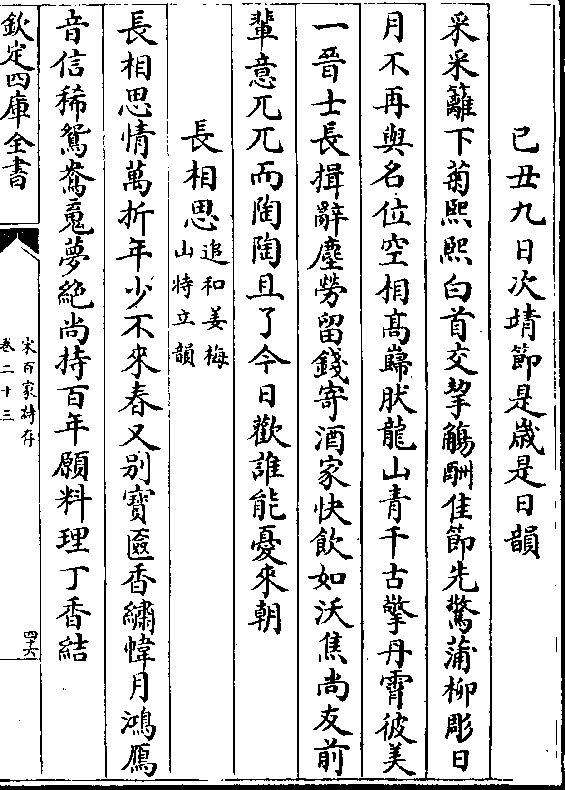 己丑九日次靖節是歲是日韻
采采籬下菊熙熙白首交挈觴酬佳節先驚蒲柳彫日
月不再與名位空相髙巋肰龍山青千古擎丹霄彼美
一晉士長揖辭塵勞留錢寄酒家快飲如沃焦尚友前
輩意兀兀而陶陶且了今日歡誰能憂來朝
長相思追和姜梅山特立韻
長相思情萬折年少不來春又别寶匳香繡幃月鴻鴈
音信稀鴛鴦䰟夢絶尚持百年願料理丁香結
欽定四庫全書
宋百家詩存
卷二十三
四十六